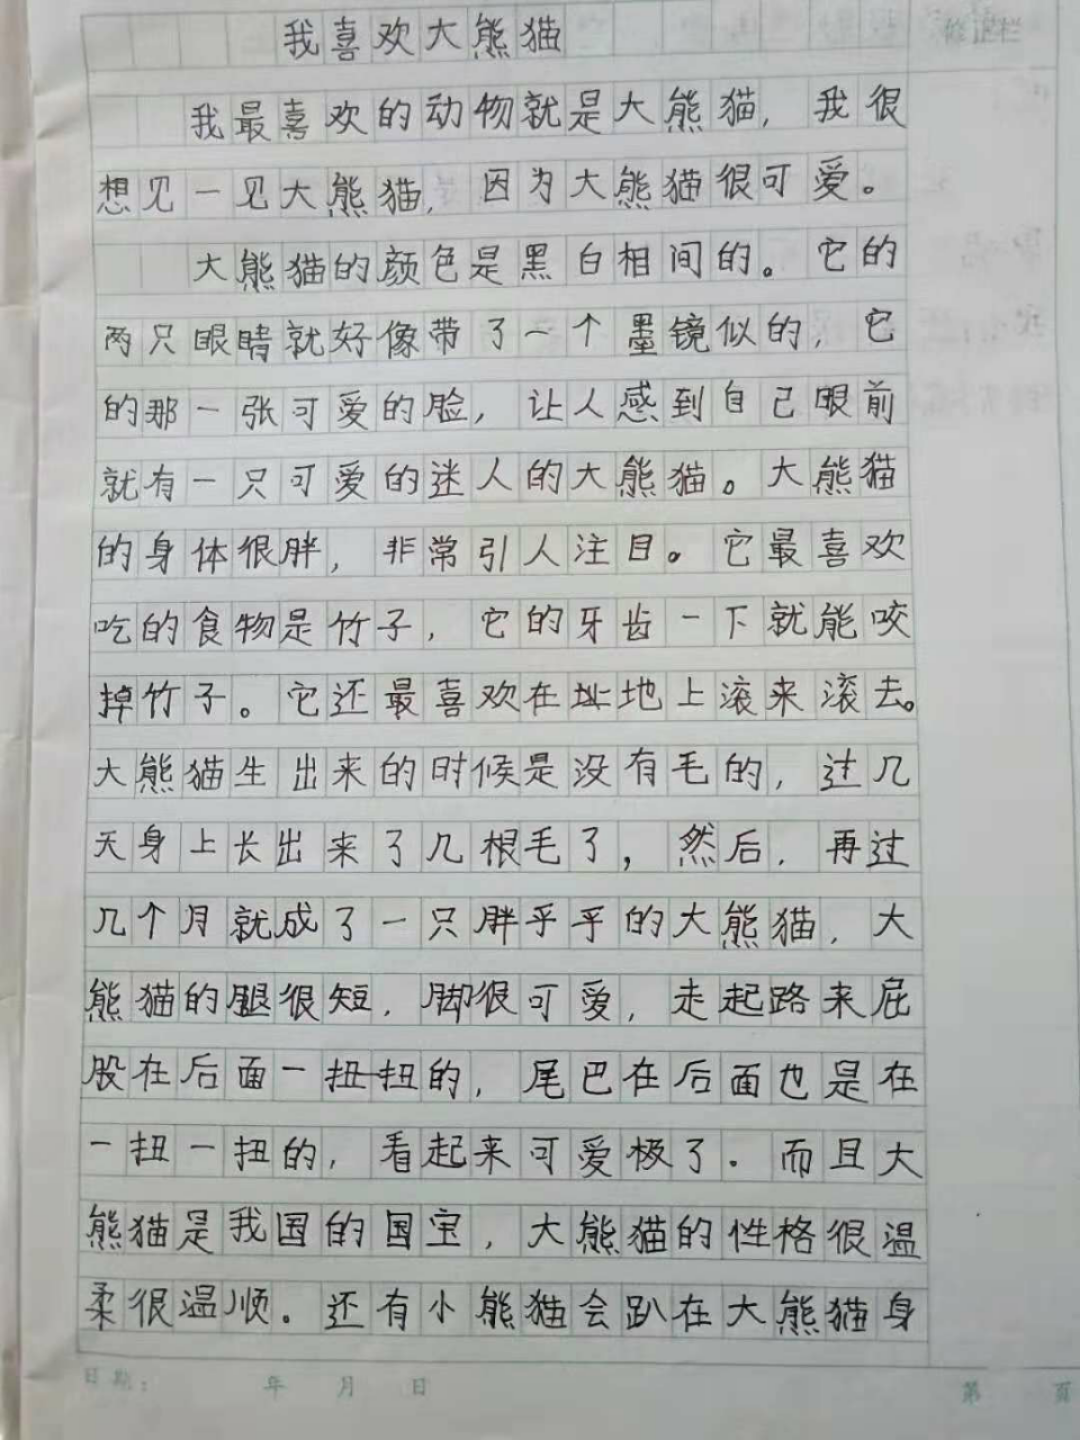 我喜欢大熊猫
修正栏
我最喜欢的动物就是大熊猫，我很
想见一见大熊猫，因为大熊猫很可爱。
大熊猫的颜色是黑白相间的。它的
两只眼睛就好像带了一个墨镜似的，它
的那一张可爱的脸，让人感到自己眼前
就有一只可爱的迷人的大熊猫。大熊猫
的身体很胖，非常引人注目。它最喜欢
吃的食物是竹子，它的牙齿一下就能咬
掉竹子。它还最喜欢在地上滚来滚去。
大熊猫生出来的时候是没有毛的，过几
天身上长出来了几根毛了，然后，再过
几个月就成了一只胖乎乎的大熊猫，大
熊猫的腿很短，脚很可爱，走起路来屁
股在后面一扭一扭的，尾巴在后面也是在
一扭一扭的，看起来可爱极了．而且大
熊猫是我国的国宝，大熊猫的性格很温
柔很温顺。还有小熊猫会趴在大熊猫身
日期： 年 月 日 第 页